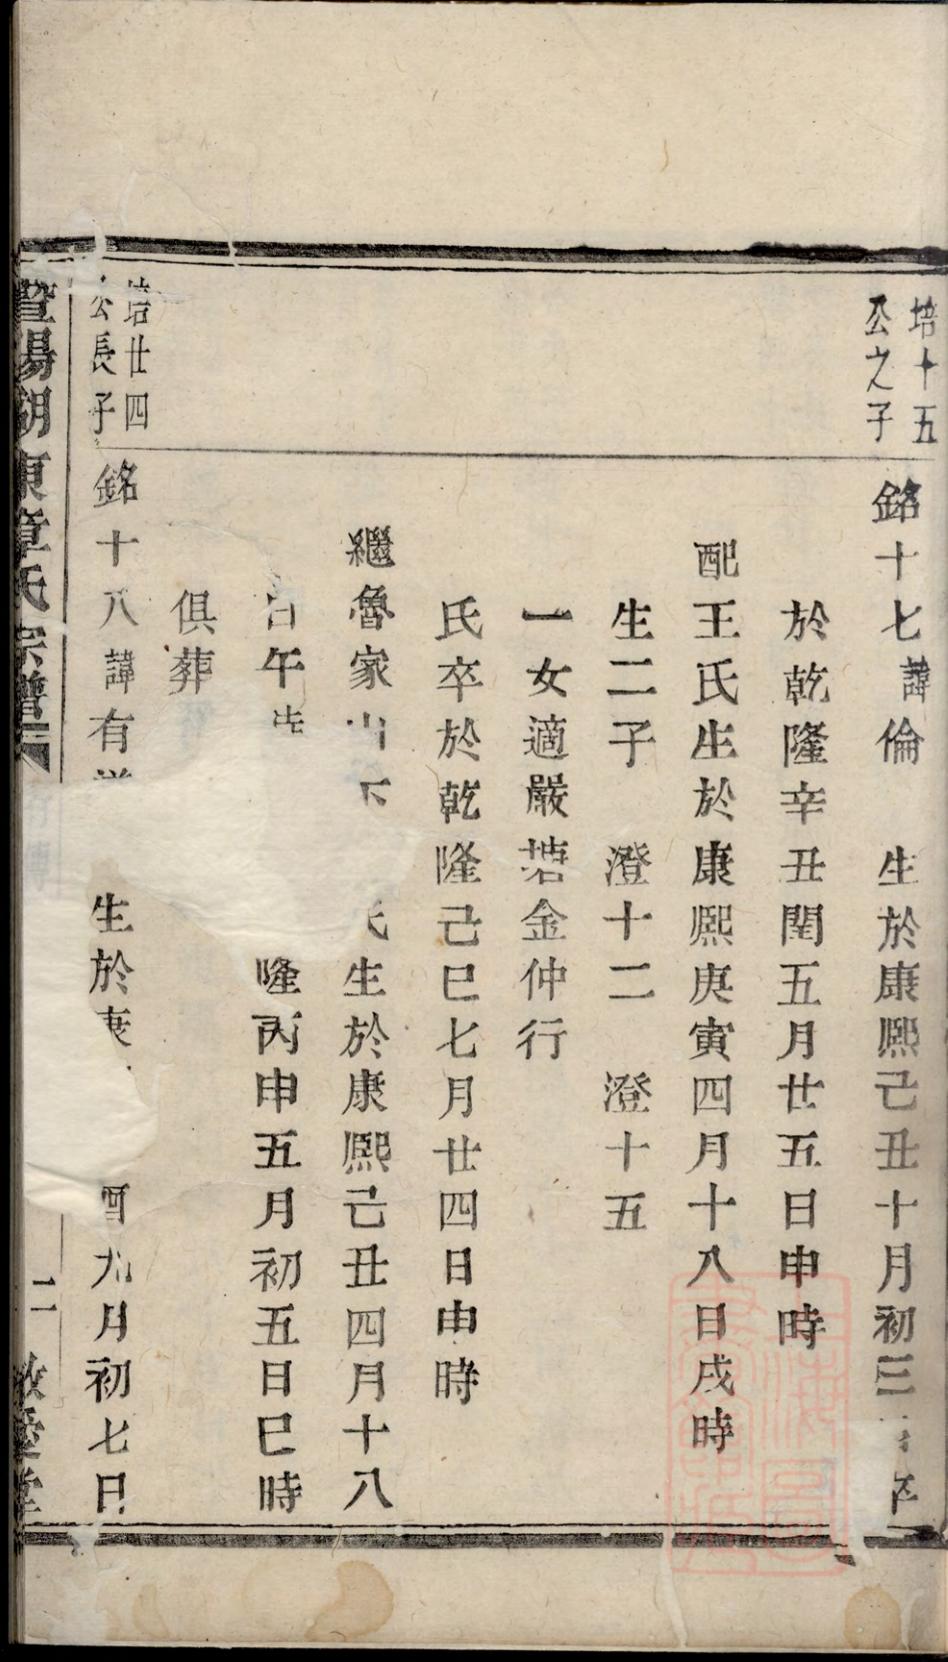 培十五
公之子
銘十七諱倫 生於康熙己丑十月初三 卒
於乾隆辛丑閏五月廿五日申時
配王氏生於康熙庚寅四月十八日戌時
生二子 澄十二 澄十五
一女適嚴塘金仲行
氏卒於乾隆己巳七月廿四日申時
繼魯家山下 氏生於康熙己丑四月十八
日午時 隆丙申五月初五日巳時
俱葬
培廿四
公長子
銘十八諱有 生於康 酉九月初七日
暨陽湖東章氏宗譜
二
敬愛堂